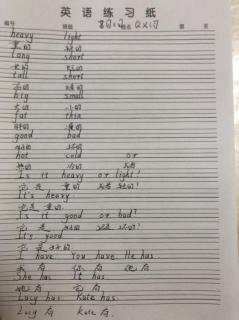 英语练习纸
编号 班级 姓名 第 页
heavy light
重的 轻的
long short
长的 短的
tall short
高的 矮的
big small
大的 小的
fat thin
胖的 瘦的
good bad
好的 坏的
hot cold or
热的 冷的 或者
Is it heavy or light?
它是 重的 或者 轻的?
It's heavy.
它是重的.
Is it good or bad?
它是 好的 或者 坏的?
It's good.
它是好的.
I have. You have. He has.
我有 你有 他有
She has. It has.
她有 它有
Lucy has. Kate has.
Lucy有 Kate有.